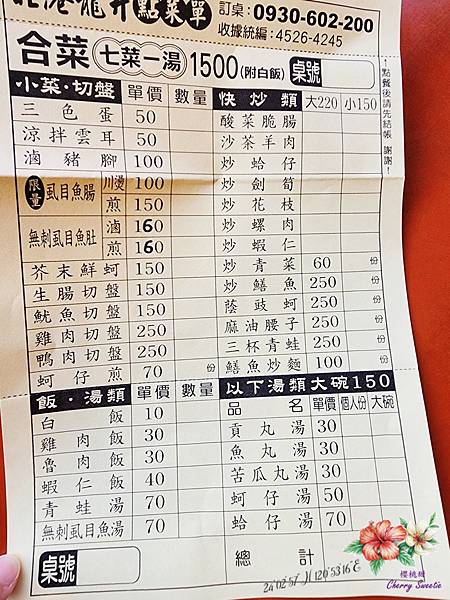 北港龍井點菜單
訂桌:0930-602-200
收據統編:4526-4245
合菜 七菜一湯 1500(附白飯) 桌號
!點餐後請先結帳 謝謝!
小菜·切盤 單價 數量
三色蛋 50
涼拌雲耳 50
滷豬腳 100
限量 虱目魚腸 川燙 100
煎 150
無刺虱目魚肚 滷 160
煎 160
芥末鮮蚵 150
生腸切盤 150
魷魚切盤 150
雞肉切盤 250
鴨肉切盤 250
蚵仔煎 70 份
快炒類 大220 小150
酸菜脆腸
沙茶羊肉
炒蛤仔
炒劍筍
炒花枝
炒螺肉
炒蝦仁
炒青菜 60 份
炒鱔魚 250 份
蔭豉蚵 250 份
麻油腰子 250 份
三杯青蛙 250 份
鱔魚炒麵 100 份
飯·湯類 單價 數量
白飯 10
雞肉飯 30
魯肉飯 30
蝦仁飯 40
青蛙湯 70
無刺虱目魚湯 70
桌號
以下湯類大碗150
品名 單價 個人份 大碗
貢丸湯 30
魚丸湯 30
苦瓜丸湯 30
蚵仔湯 50
蛤仔湯 70
總計
24°02'57"N 120°53'16"E
櫻桃甜
Cherry Sweetie